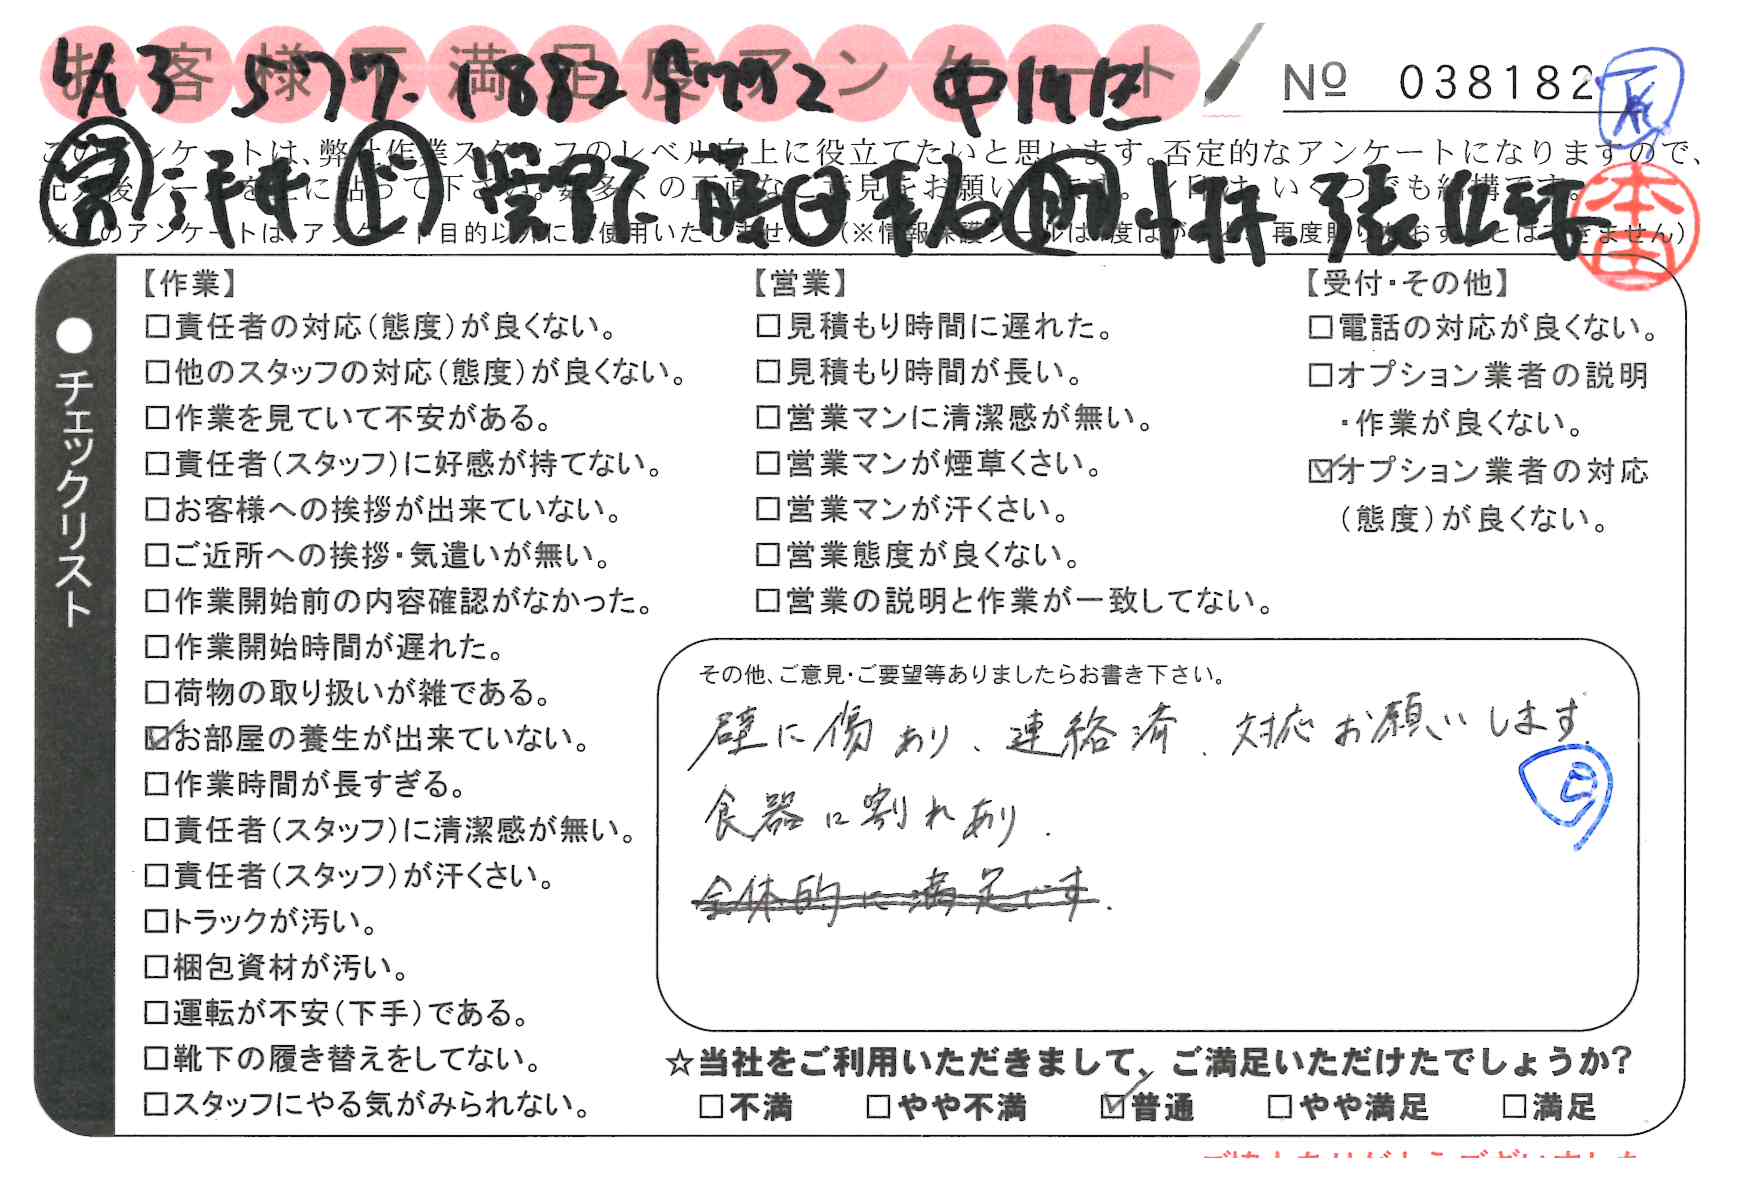 お客様不満足度アンケート
№ 038182
4/13 577. 1882
このアンケートは、弊社作業スタッフのレベル向上に役立てたいと思います。否定的なアンケートになりますので、
※このアンケートは、アンケート目的以外には使用いたしません。
本田
●チェックリスト
【作業】
□責任者の対応(態度)が良くない。
□他のスタッフの対応(態度)が良くない。
□作業を見ていて不安がある。
□責任者(スタッフ)に好感が持てない。
□お客様への挨拶が出来ていない。
□ご近所への挨拶・気遣いが無い。
□作業開始前の内容確認がなかった。
□作業開始時間が遅れた。
□荷物の取り扱いが雑である。
☑お部屋の養生が出来ていない。
□作業時間が長すぎる。
□責任者(スタッフ)に清潔感が無い。
□責任者(スタッフ)が汗くさい。
□トラックが汚い。
□梱包資材が汚い。
□運転が不安(下手)である。
□靴下の履き替えをしてない。
□スタッフにやる気がみられない。
【営業】
□見積もり時間に遅れた。
□見積もり時間が長い。
□営業マンに清潔感が無い。
□営業マンが煙草くさい。
□営業マンが汗くさい。
□営業態度が良くない。
□営業の説明と作業が一致してない。
【受付・その他】
□電話の対応が良くない。
□オプション業者の説明
・作業が良くない。
☑オプション業者の対応
(態度)が良くない。
その他、ご意見・ご要望等ありましたらお書き下さい。
壁に傷あり、連絡済、対応お願いします。
食器に割れあり.
全体的に満足です.
☆当社をご利用いただきまして、ご満足いただけたでしょうか?
□不満 □やや不満 ☑普通 □やや満足 □満足